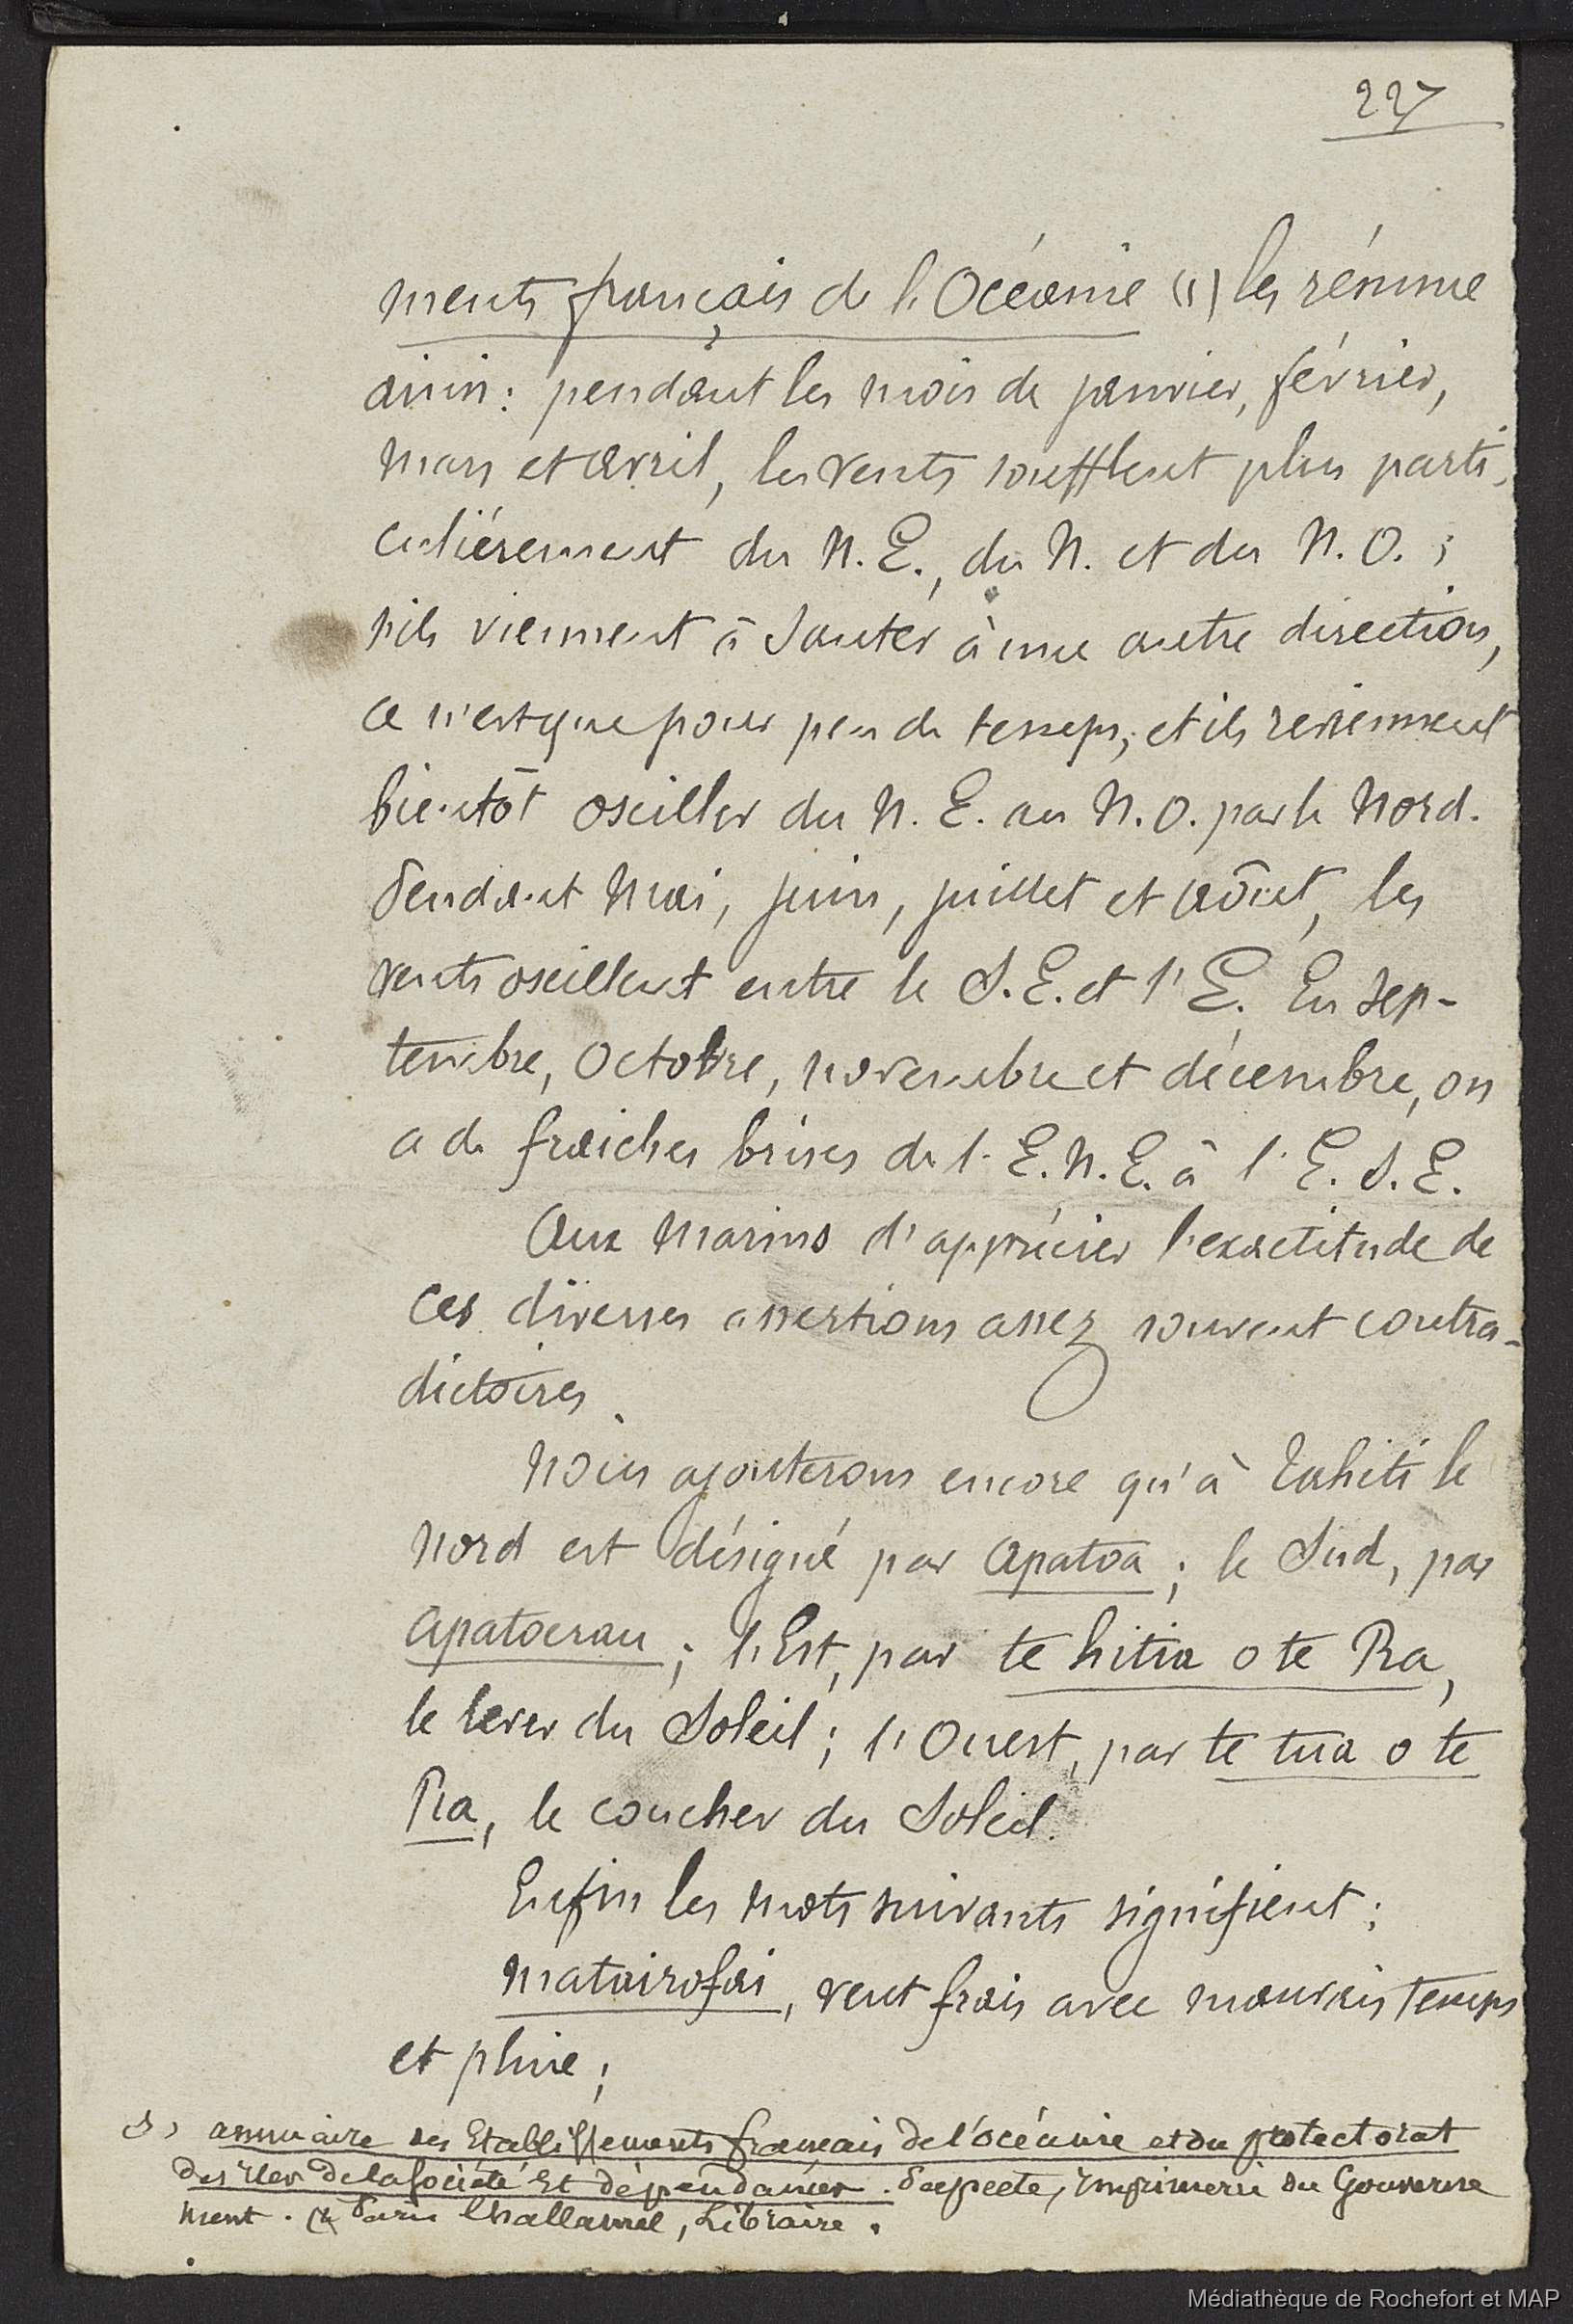 227
ments français de l'Océanie (1) les résume
ainsi : pendant les mois de janvier, février,
mars et avril, les vents soufflent plus parti-
culièrement du N.E., du N. et du N.O. ;
s'ils viennent à sauter à une autre direction,
ce n'est que pour peu de temps, et ils reviennent
bientôt osciller du N.E. au N.O. par le Nord.
Pendant Mai, juin, juillet et août, les
vents oscillent entre le S.E. et l'E. En sep-
tembre, Octobre, novembre et décembre, on
a de fraiches brises de l'E.N.E. à l'E.S.E.
Aux marins d'apprécier l'exactitude de
ces diverses assertions assez souvent contra-
dictoires.
Nous ajouterons encore qu'à Tahiti le
Nord est désigné par Apatoa ; le Sud, par
Apatoerau ; l'Est, par te hitia o te Ra,
le lever du Soleil ; l'Ouest, par te tua o te
Ra, le coucher du Soleil.
Enfin les mots suivants signifient :
matairofai, vent frais avec mauvais temps
et pluie ;
annuaire des Etablissements français de l'océanie et du protectorat
des iles de la société et dépendances. Papeete, Imprimerie du Gouverne
ment. Paris Challamel, Libraire.
Médiathèque de Rochefort et MAP